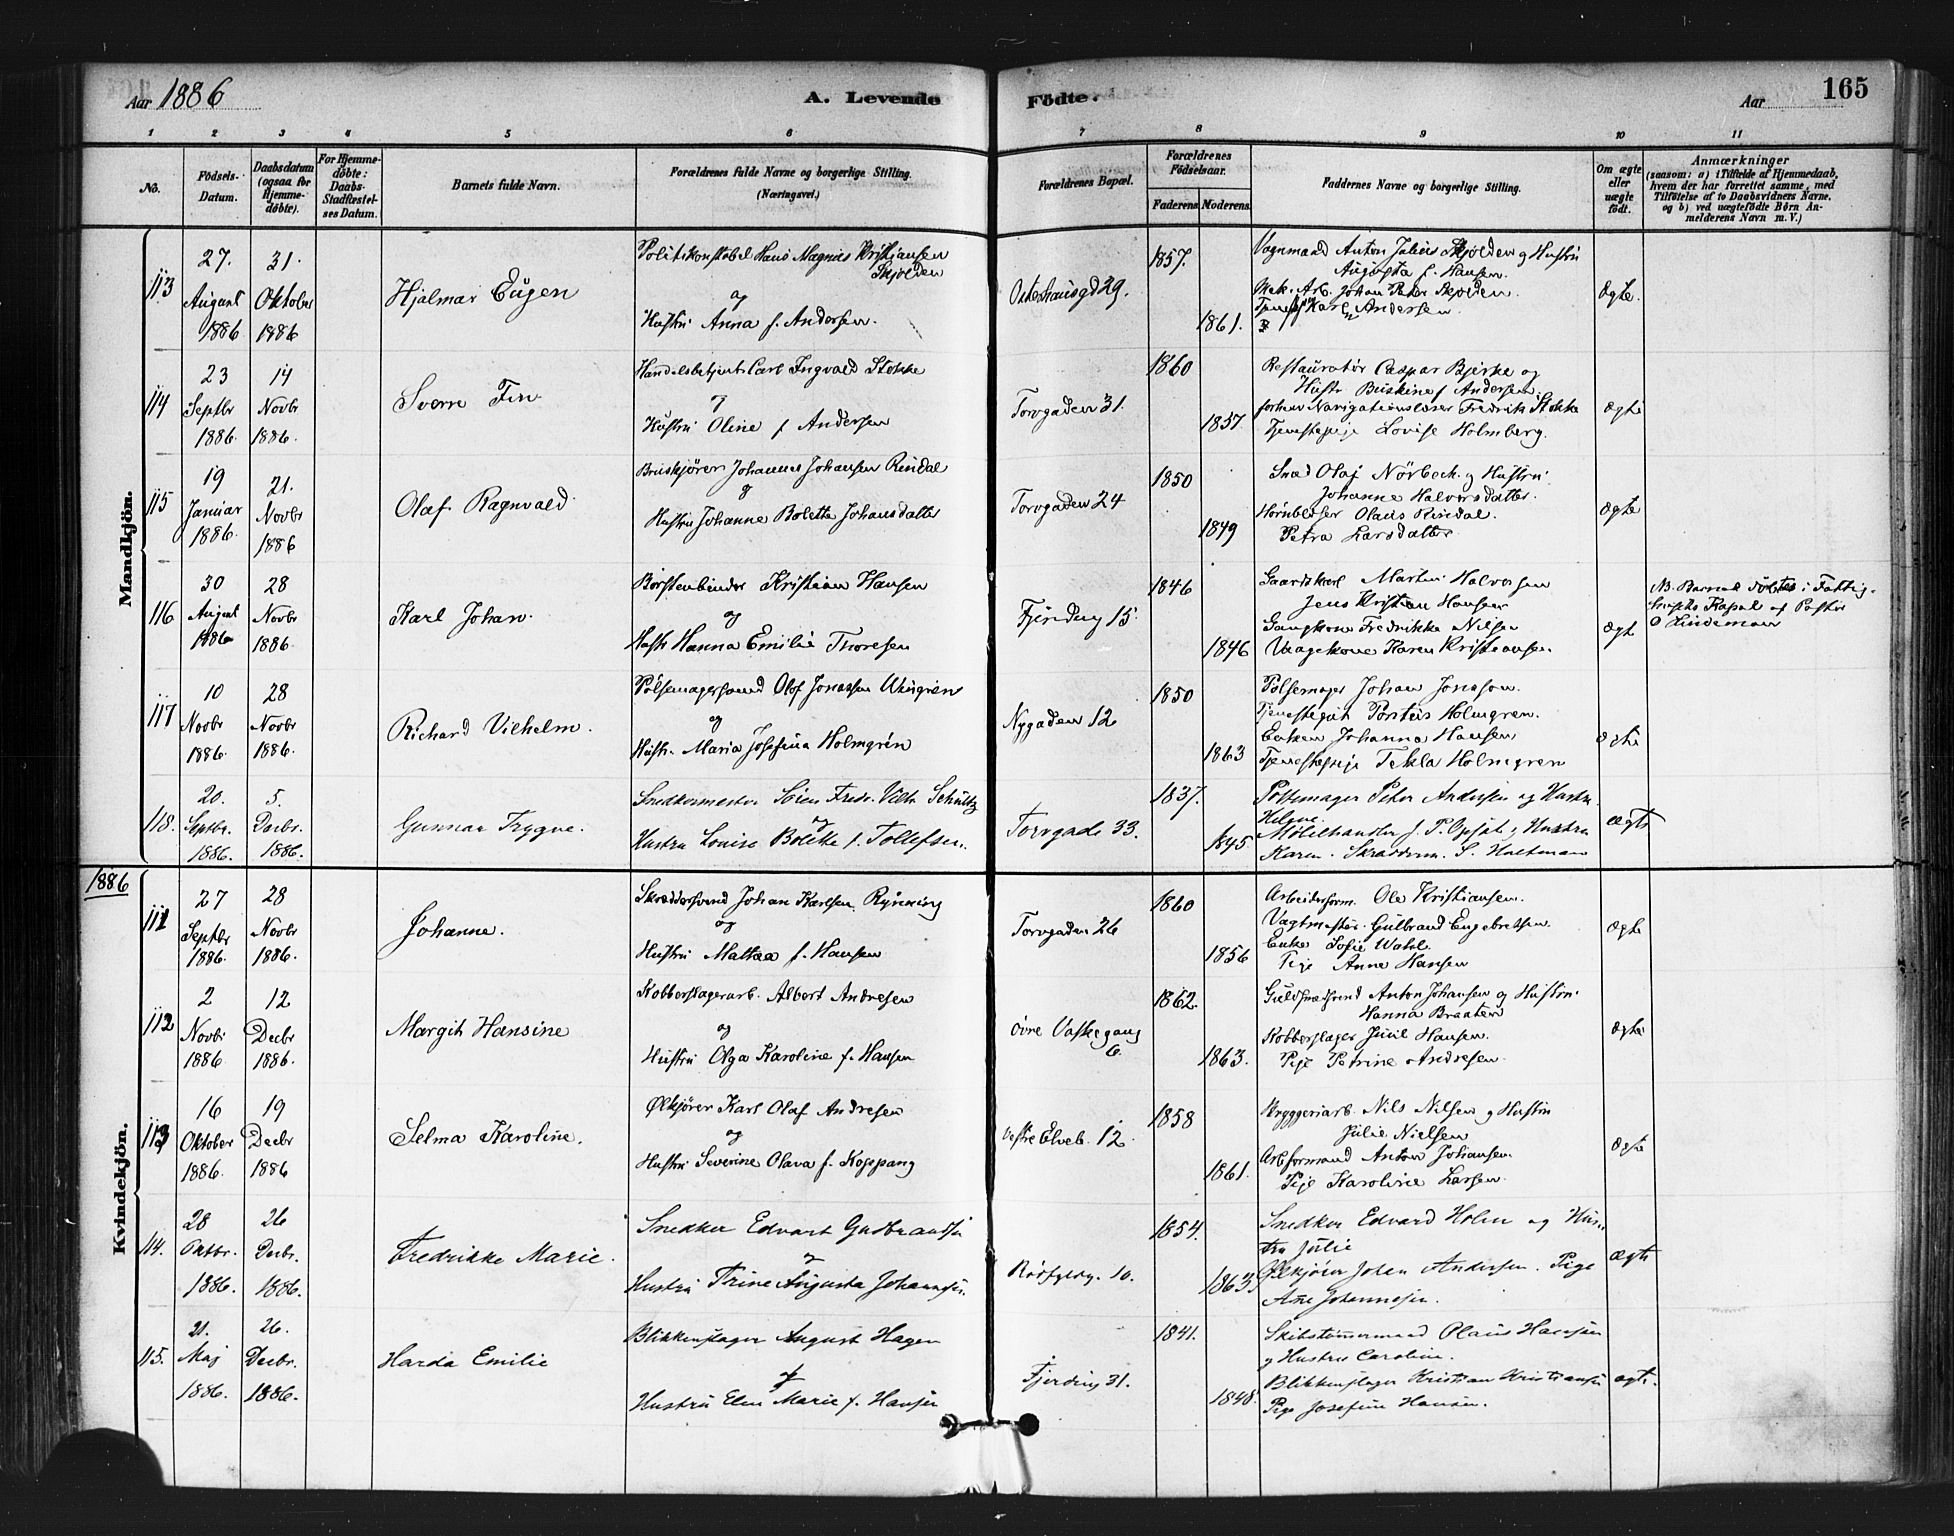 Aar 1886
A. Levende Födte.
Aar
165
1 2 3 4 5 6 7 8 9 10 11
No.
Födsels-Datum.
Daabsdatum (ogsaa for Hjemme-döbte).
For Hjemme-döbte: Daabs-Stadfæstel-ses Datum.
Barnets fulde Navn.
Forældrenes fulde Navne og borgerlige Stilling. (Næringsvei.)
Forældrenes Bopæl.
Forældrenes Födselsaar.
Faderens. Moderens.
Faddernes Navne og borgerlige Stilling.
Om ægte eller uægte födt.
Anmærkninger
(saasom: a) i Tilfælde af Hjemmedaab, hvem der har forrettet samme, med Tilföielse af to Daabsvidners Navne, og b) ved uægtefödte Börn An-melderens Navn m. V.)
Mandkjön.
113
27. August 1886
31. Oktober 1886
Hjalmar Eugen
Politikonstabel Hans Magnus Kristiansen Skjolden
og
Hustru Anna f. Andersen.
Osterhausgd 29.
1857.
1861.
Vognmand Anton Julius Skjolden og Hustru
Augusta f. Hansen.
Mek. Arb. Johan Peter Skjolden.
Karl Andersen.
Ægte.
114
23 Septbr 1886.
14 Novbr 1886.
Sverre Fin
Handelsbetjent Carl Ingvald Stokke
og
Hustru Oline f Andersen
Torvgaden 31.
1860
1857.
Restauratør Caspar Bjerke og
Hustr Andersen
forhen Navigationslærer Fredrik Stokke
Tjenestepige Lovise Holmberg.
Ægte
115
19 Januar 1886.
21. Novbr 1886
Olaf Ragnvald
Bruskjører Johannes Johansen Rindal
og
Hustru Johanne Bolette Johansdatter
Torvgaden 24
1850
1849
Smed Olaf Nörbech og Hustru
Johanne Halvorsdatter.
Hornblæser Olaus Rindal.
Petra Larsdatter
Ægte
116
30 August 1886
28 Novbr 1886.
Karl Johan.
Børstenbinder Kristian Hansen
og
Hustr Hanna Emilie Thoresen
Fjerding 15
1846
1846
Gaardskarl Martin Halvorsen
Jens Kristian Hansen
Gangkone Fredrikke Nilsen
Vaagekone Karen Kristiansen
Ægte
NB. Barnet døbtes i Fattig-
Kapel af Pastor
O Lindeman
117
10 Novbr 1886.
28 Novbr 1886.
Richard Vilhelm.
Pölsemagersvend Olof Jonassen Wingren
og
Hustr. Maria Josefina Holmgren
Nygaden 12
1850
1863
Pölsemager Johan Jonasson.
Tjenestegut Holmgren.
Enken Johanna Hansen
Tjenestepige Tekla Holmgren
Ægte
118.
20. Septbr. 1886.
5. Decbr. 1886.
Gunnar Trygve.
Snedkermester Sören Fredr. Vilh. Schultz
og
Hustru Louise Bolette f. Tollefsen.
Torvgade 33.
1837.
1845.
Pottemager Peter Andersen og Hustru
Helene.
Möbelhandler J. P. og Hustru
Karen. Skrædderm. S. Holtman
Ægte
1886
Kvindekjön.
111
27 Septbr 1886.
28 Novbr 1886.
Johanne.
Skræddersvend Johan Karlsen Rynning
og
Hustru Mathea f. Hansen
Torvgaden 26
1860
1856
Arbeidsform. Ole Kristiansen.
Vagtmester Gulbrand Engebretsen
Enke Sofie Wahl
Pige Anne Hansen
Ægte
112
2 Novbr 1886
12 Decbr 1886.
Margit Hansine
Kobberslagerarb. Albert Andresen
og
Hustru Olga Karoline f. Hansen
Övre Vaskegang 6.
1862.
1863.
Guldsmedsvend Anton Johansen og Hustru
Hanna Braaten
Kobberslager Juul Hansen.
Pige Petrine Andresen.
Ægte
113
16 Oktober 1886.
19 Decbr 1886
Selma Karoline.
Ølkjører Karl Olaf Andresen
og
Hustru Severine Olava f. Koppang
Vestre Elveb. 12.
1858
1861.
Bryggeriarb. Nils Nilsen og Hustru
Julie Nielsen
Arbformand Anton Johansen.
Pige Karoline Larsen
Ægte
114.
28 Oktbr. 1886.
26 Decbr. 1886.
Fredrikke Marie.
Snedker Edvart Gulbrandsen
og
Hustru Trine Augusta Johannesen.
Rödfyldg. 10.
1854.
1863.
Snedker Edvard Holm og Hus-
tru Julie
Ølkjörer Johan Andersen. Pige
Ane Johannesen.
Ægte
115.
21. Maj 1886.
26. Decbr. 1886.
Harda Emilie
Blikkenslager August Hagen
og
Hustru Elen Marie f. Hansen
Fjerding 31.
1841.
1848.
Skibstömmermand Olaus Hansen
og Hustru Caroline.
Blikkenslager Kristian Kristiansen
Pige Josefine Hansen.
ægte.